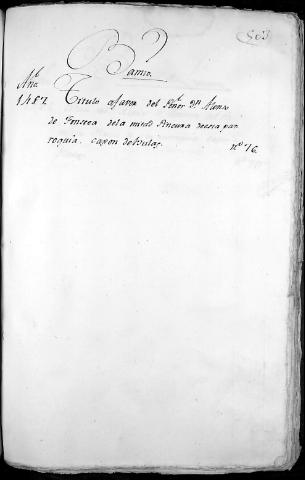 503
Bamio.
Añ.
1487. Titulo afavor del señor Dn. Alonso
de Fonseca dela mitad sincura deesta par
roquia. caxon de Bulas. nº 76.